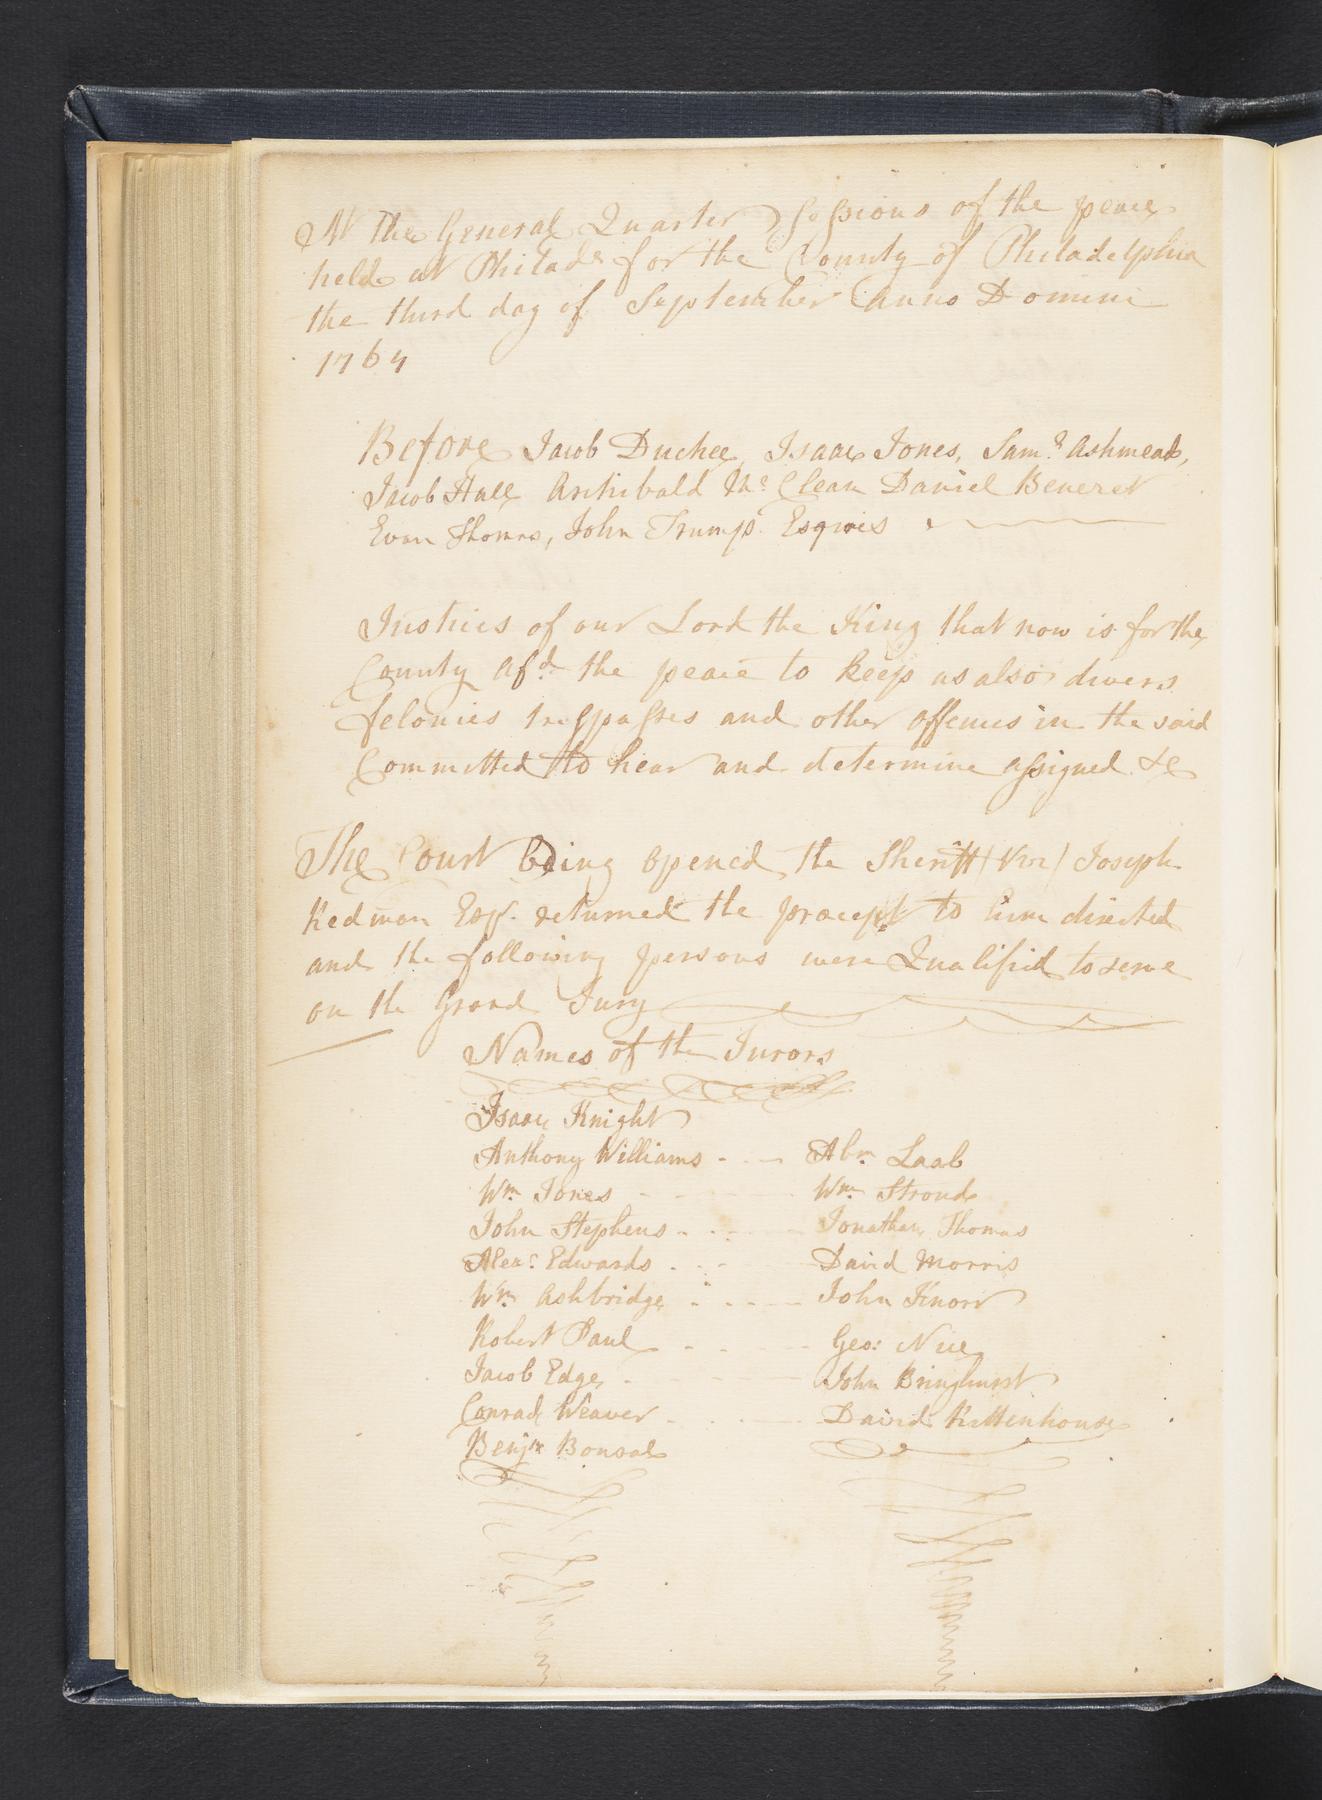 At the General Quarter Sessions of the peace
held at Philada for the County of Philadelphia
the third day of September Anno Domini
1764
Before Jacob Duchee, Isaac Jones, Saml Ashmead,
Jacob Hall Archibald Mc Clean Daniel Beneret
Evan Thomas, John Trump Esqrs
Justices of our Lord the King that now is for the
County afd the peace to keep as also divers
felonies trespasses and other offences in the said
Committed to hear and determine assigned &c
The Court being opened the Sheriff (viz) Joseph
Redman Esqr. returned the precept to him directed
and the following persons were Qualified to serve
on the Grand Jury
Names of the Jurors
Isaac Knight
Anthony Williams - - - Abm Laab
Wm Jones - - - - Wm Stroud
John Stephens - - - Jonathan Thomas
Alexr Edwards - - - David Morris
Wm Ashbridge - - - John Knorr
Robert Paul - - - Geo: Nice
Jacob Edge - - - John Bringhurst
Conrad Weaver - - - David Rittenhouse
Benjn Bonsal